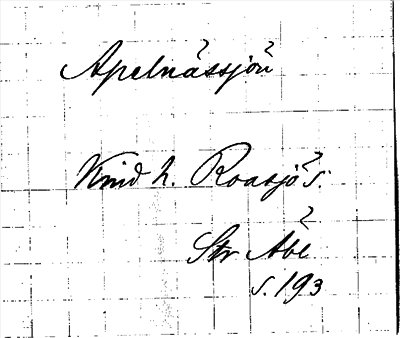 Apelnässjön
Kind h. Roasjö s.
Str Åbc
s. 193